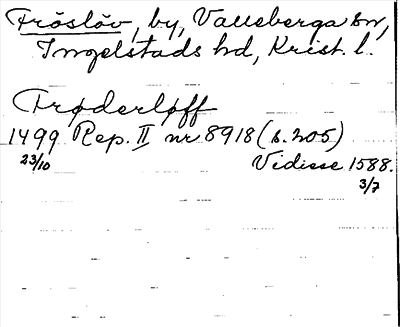 Fröslöv, by, Valleberga sn,
Ingelstads hd, Krist. l.
Frøderløff
1499 Rep. II nr 8918 (s. 205)
23/10 Vidisse 1588.
3/7